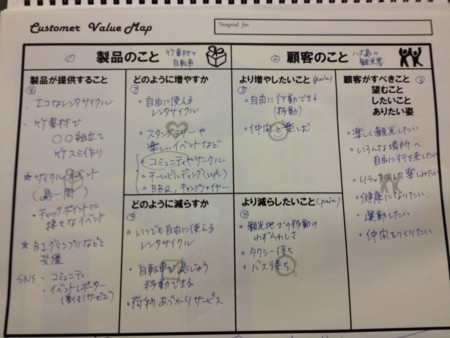 Customer Value Map
Designed for:
製品のこと
竹素材の
自転車
顧客のこと
八丈島の
観光客
製品が提供すること
・エコなレンタサイクル
・竹素材で
○○組立て
・サイクルイベント
(島一周)
・チェックポイントに
様々なイベント
SNS - コミュニティ
- イベントレポーター
どのように増やすか
・自由に使える
レンタサイクル
・スタンプラリーや
楽しいイベントなど
・コミュニティやサークル
・チームビルディング
・BBQ、キャンプファイヤー
どのように減らすか
・いつでも自由に使える
レンタサイクル
・自転車で島じゅう
移動できる
・荷物あづかりサービス
より増やしたいこと (gain)
・自由に行動できる
(移動)
・仲間と楽しむ
より減らしたいこと (pain)
・観光地での移動の
わずらわしさ
・タクシー待ち
・バス待ち
顧客がすべきこと
望むこと
したいこと
ありたい姿
・楽しく観光したい
・いろんな場所へ
自由に行き来したい
・健康になりたい
・運動したい
・仲間をつくりたい